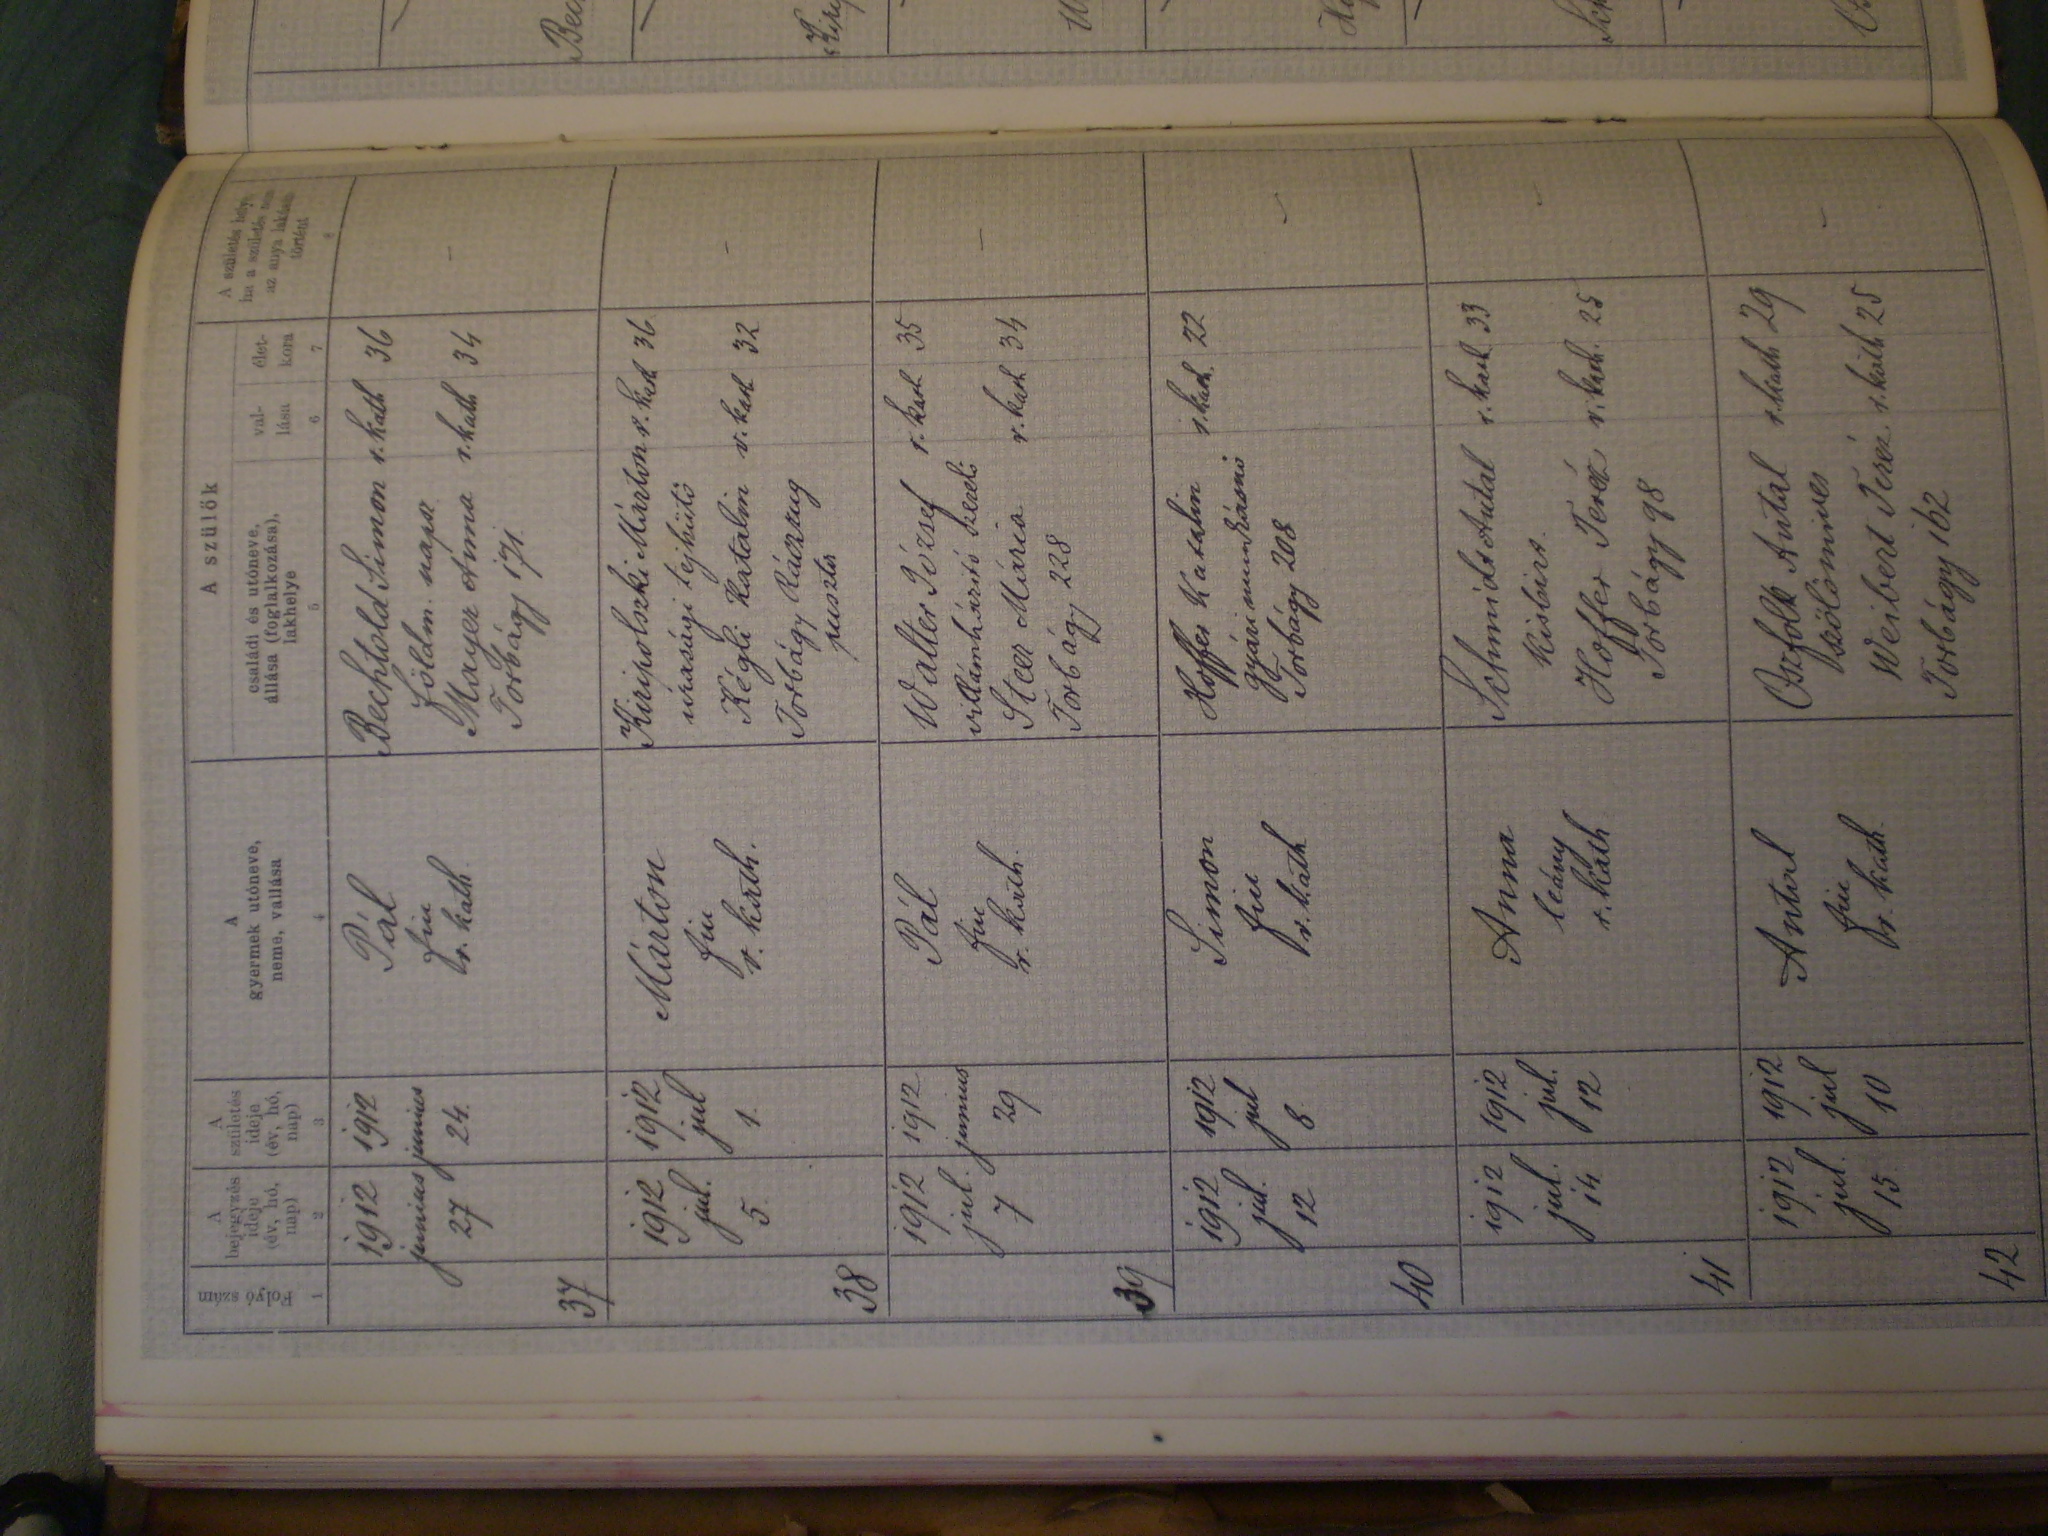 Folyó szám
1
A
bejegyzés
ideje
(év, hó,
nap)
2
A
születés
ideje
(év, hó,
nap)
3
A
gyermek utóneve,
neme, vallása
4
A szülők
családi és utóneve,
állása (foglalkozása),
lakhelye
5
val-
lása
6
élet-
kora
7
A születés helye,
ha a születés nem
az anya lakásán
történt
8
37
1912
junius
27
1912
junius
24.
Pál
fiu
r. kath.
Bechtold Simon r. kath 36
földm. napsz.
Mayer Anna r. kath 34
Torbágy 171.
-
38
1912
jul.
5.
1912
jul
1.
Márton
fiu
r. kath.
Kiripolszki Márton r. kath 36
uradalmi tejhütő
Kégli Katalin r. kath 32
Torbágy Rácszug
puszta
-
39
1912
jul.
7
1912
junius
29
Pál
fiu
r. kath.
Walter József r. kath 35
villámhárító kezelő
Steer Mária r. kath 34
Torbágy 228
-
40
1912
jul.
12
1912
jul
8
Simon
fiu
r. kath
Hoffer Katalin r. kath. 22
gyári munkásnő
Torbágy 208
-
41
1912
jul.
14
1912
jul.
12
Anna
leány
r. kath
Schmidt Antal r. kath 33
kisbirt.
Hoffer Teréz r. kath. 25
Torbágy 98
-
42
1912
jul.
15
1912
jul
10
Antal
fiu
r. kath.
Oszfolk Antal r. kath 29
szőlőmives
Weibert Teréz r. kath 25
Torbágy 162
-